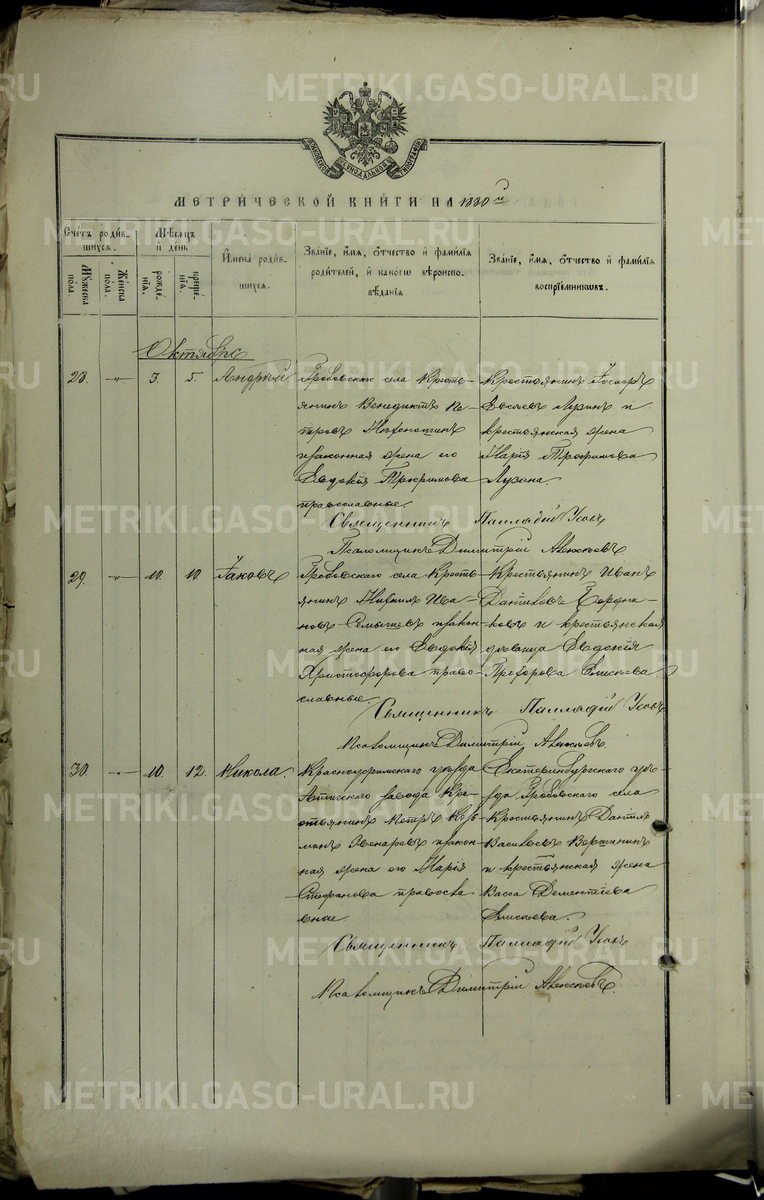 METRIKI.GASO-URAL.RU
МОСКОВСКОЙ СИНОДАЛЬНОЙ ТИПОГРАФІИ
МЕТРИЧЕСКОЙ КНИГИ НА 1880й
Счетъ родив-
шихся.
Мужеска пола.
Женска пола.
Мѣсяцъ
и день
рожде-
нія.
креще-
нія.
Имена родив-
шихся.
Званіе, имя, отчество и фамилія
родителей, и какого вѣроиспо-
вѣданія.
Званіе, имя, отчество и фамилія
воспріемниковъ.
Октябрь
28. -„- 3. 5. Андрей.
Гробовскаго села кресть-
янинъ Венедиктъ Пе-
тровъ
и законная жена его
Евдокія Трофимова
православные.
Крестьянинъ
Лузинъ и
крестьянская жена
Марія Трофимова
Лузина.
Священникъ Палладій Усовъ
Псаломщикъ Димитрій Алексѣевъ
29. -„- 10. 10. Іаковъ
Гробовскаго села кресть-
янинъ Михаилъ Ива-
новъ и закон-
ная жена его Евдокія
Христофорова право-
славные.
Крестьянинъ Иванъ
и крестьянская
дѣвица Евдокія
Елисѣева
Священникъ Палладій Усовъ
Псаломщикъ Димитрій Алексѣевъ.
30. -„- 10. 12. Никола.
Красноуфимскаго уѣзда
завода кре-
стьянинъ Петръ
и закон-
ная жена его Марія
Стефанова правосла-
вные
Екатеринбургскаго уѣз-
да Гробовскаго села
крестьянинъ Даніилъ
Васильевъ
и крестьянская жена
Васса Дементіева
Елисѣева.
Священникъ Палладій Усовъ
Псаломщикъ Димитрій Алексѣевъ.